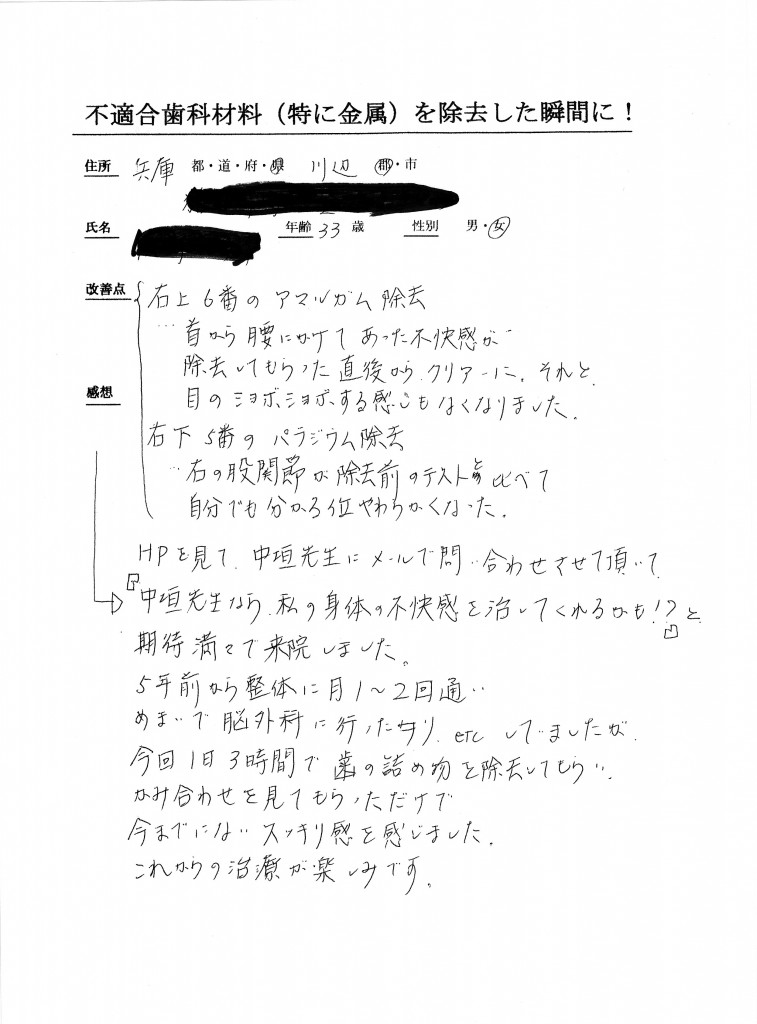 不適合歯科材料（特に金属）を除去した瞬間に！
住所 兵庫 都・道・府・県 川辺 郡・市
氏名 年齢 33 歳 性別 男・女
改善点 右上6番のアマルガム除去
…首から腰にかけてあった不快感が
除去してもらった直後から、クリアーに。それと、
感想 目のショボショボする感じもなくなりました。
右下5番のパラジウム除去
…右の股関節が除去前のテストと比べて
自分でも分かる位やわらかくなった。
HPを見て、中垣先生にメールで問い合わせさせて頂いて
『中垣先生なら、私の身体の不快感を治してくれるかも!?』と
期待満々で来院しました。
5年前から整体に月1〜2回通い
めまいで脳外科に行ったり、etc していましたが、
今回1日3時間で歯の詰め物を除去してもらい、
かみ合わせを見てもらっただけで
今までにないスッキリ感を感じました。
これからの治療が楽しみです。